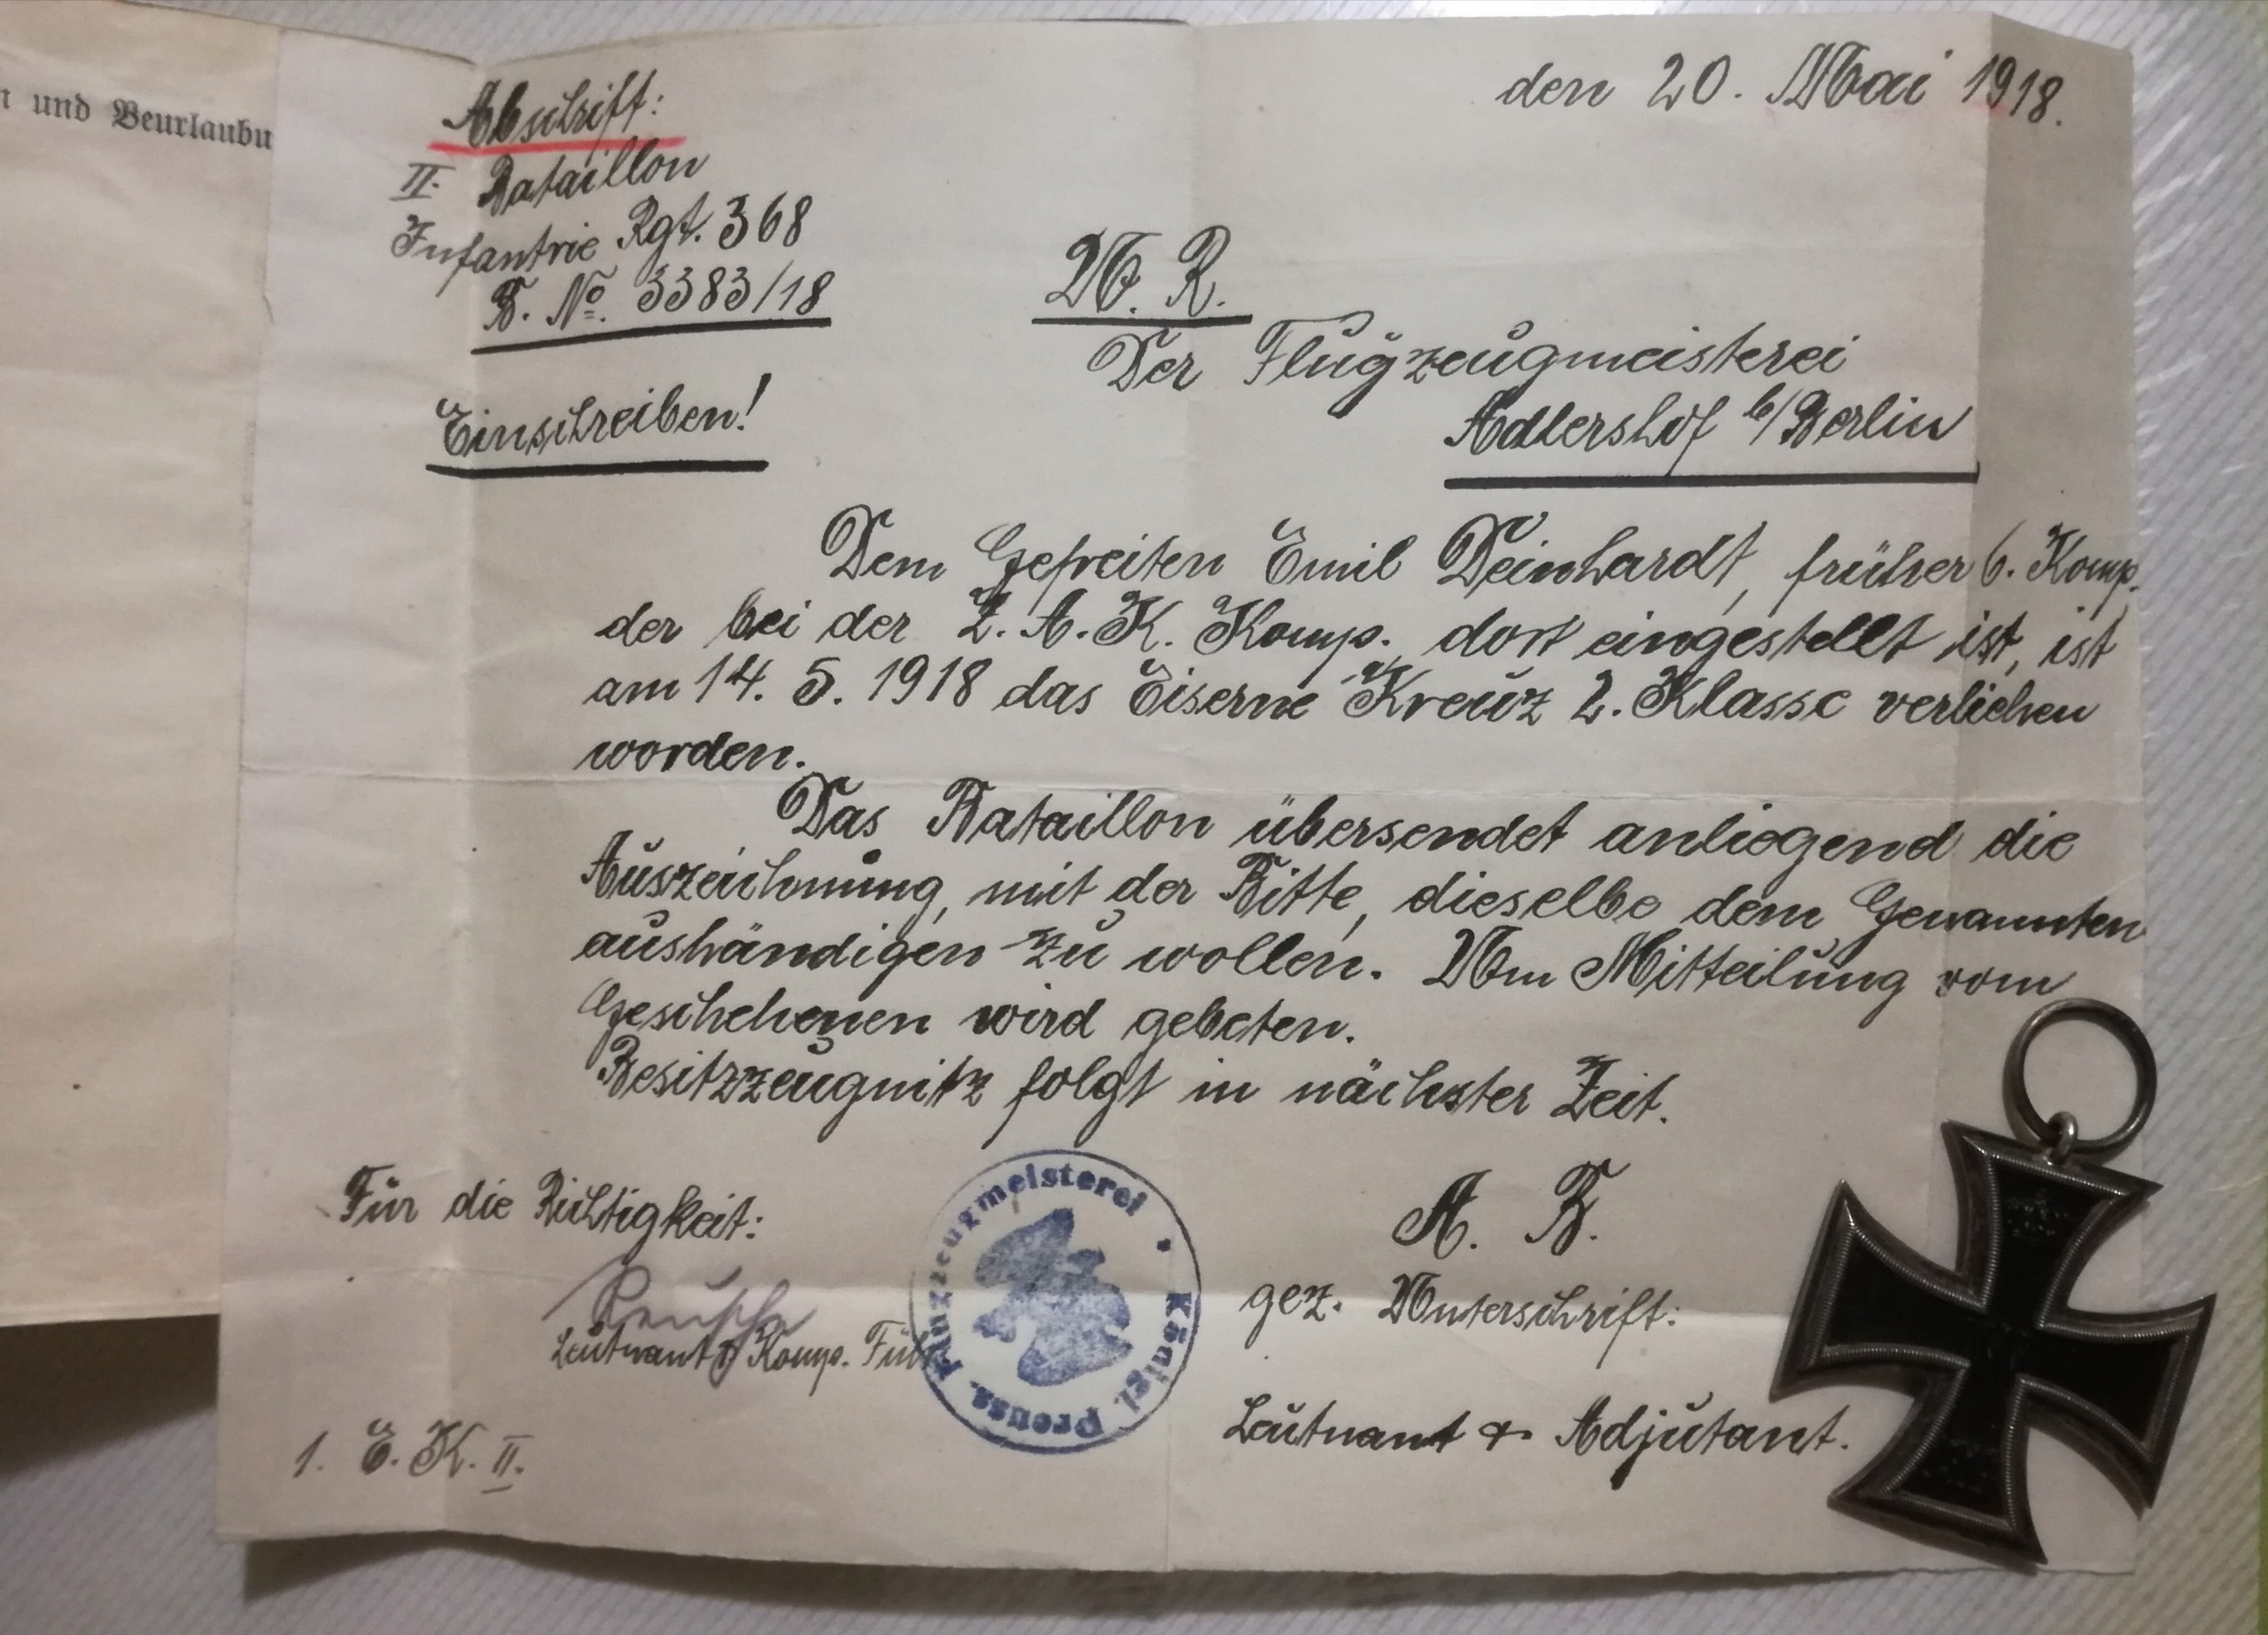 und Beurlaubu
den 20. Mai 1918.
Abschrift:
II. Bataillon
Infantrie Rgt. 368
B. No. 3383/18
U. R.
Der Flugzeugmeisterei
Adlershof b/Berlin
Einschreiben!
Dem Gefreiten Emil Deinhardt, früher 6. Komp.
der bei der Z. A. K. Komp. dort eingestellt ist, ist
am 14. 5. 1918 das Eiserne Kreuz 2. Klasse verliehen
worden.
Das Bataillon übersendet anliegend die
Auszeichnung, mit der Bitte, dieselbe dem Genannten
aushändigen zu wollen. Um Mitteilung vom
Geschehenen wird gebeten.
Besitzzeugnitz folgt in nächster Zeit.
Für die Richtigkeit:
Leutnant Komp. Füh
Königl. Preuss. Flugzeugmeisterei
A. B.
gez. Unterschrift:
Leutnant & Adjutant.
1. E. K. II.